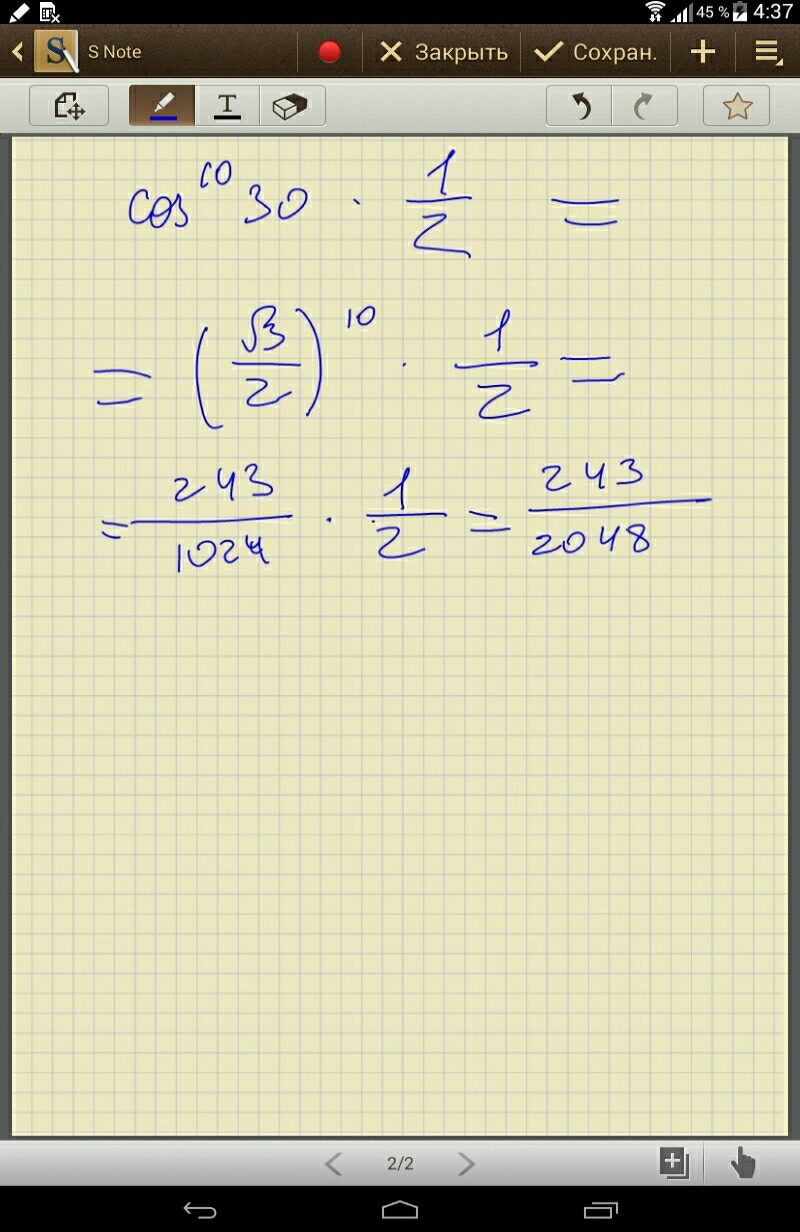 45 % 4:37
S Note Закрыть Сохран.
T
cos¹⁰ 30 · 1/2 =
= (√3/2)¹⁰ · 1/2 =
= 243/1024 · 1/2 = 243/2048
2/2